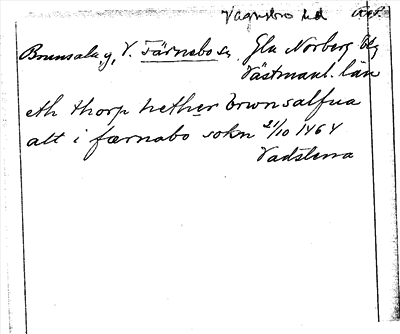 Vagnsbro hd
Brunsala, g, V. Färnebo sn Gla Norberg btg
Västmanl. län
eth thorp hether brwnsalfua
att i færnabo sokn 21/10 1464
Vadstena